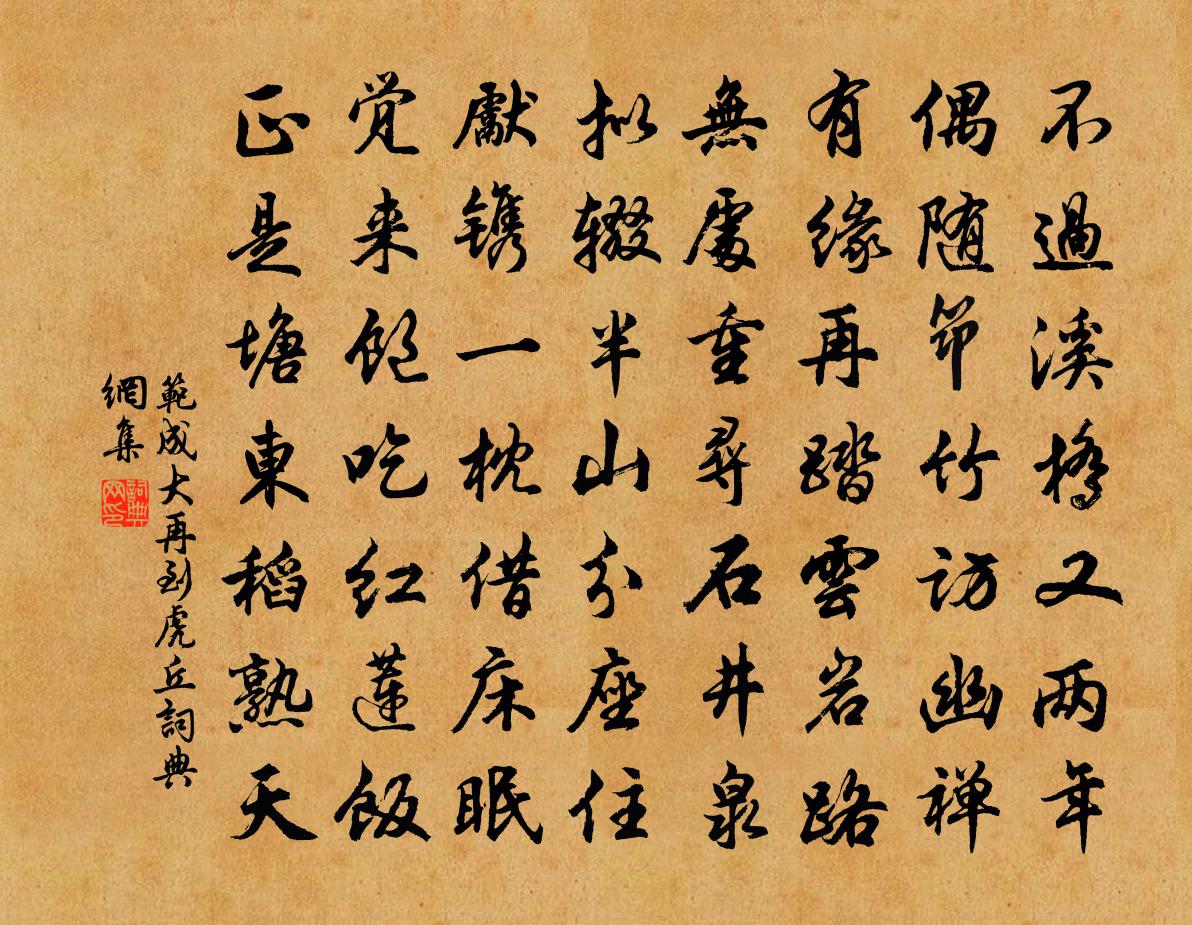 不過溪橋又两年
偶随筇竹訪幽禅
有缘再踏雲岩路
無處重尋石井泉
拟辍半山分座住
獻镌一枕借床眠
觉来饱吃红蓮飯
正是塘東稻熟天
範成大再到虎丘詞典
網集
詞典
网印